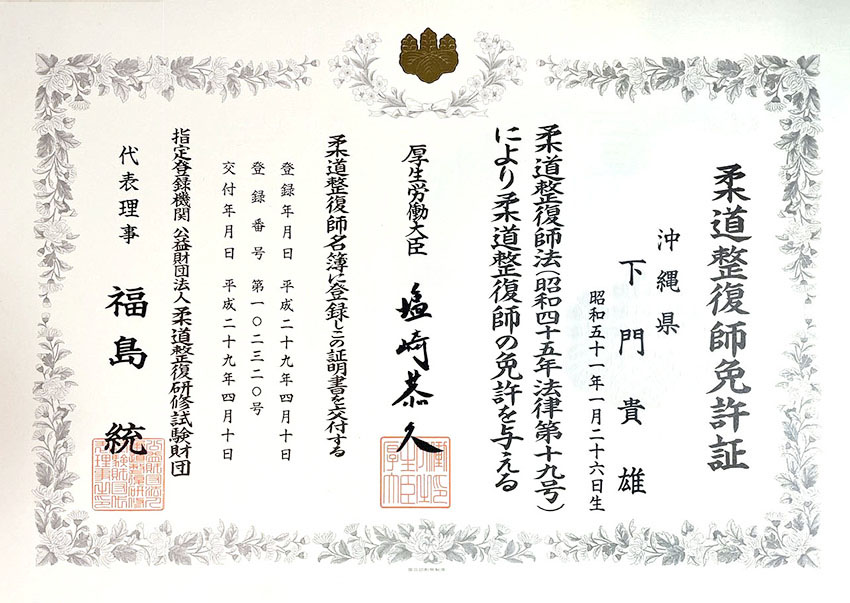 柔道整復師免許証
沖縄県
下門貴雄
昭和五十一年一月二十六日生
柔道整復師法(昭和四十五年法律第十九号)
により柔道整復師の免許を与える
厚生労働大臣 塩崎恭久
柔道整復師名簿に登録しこの証明書を交付する
登録年月日 平成二十九年四月十日
登録番号 第一〇二三二〇号
交付年月日 平成二十九年四月十日
指定登録機関 公益財団法人柔道整復研修試験財団
代表理事 福島統